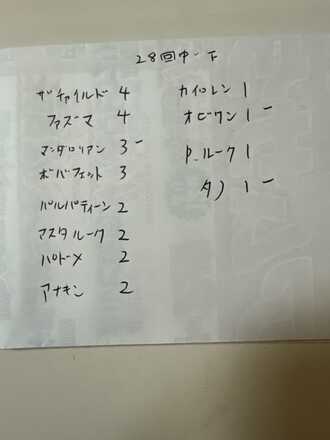 28回中一下
ザチャイルド 4
ファズマ 4
マンダロリアン 3 -
ボバフェット 3
パルパティーン 2
マスタルーク 2
パドメ 2
アナキン 2
カイロレン 1
オビワン 1 -
P.ルーク 1
タノ 1 -